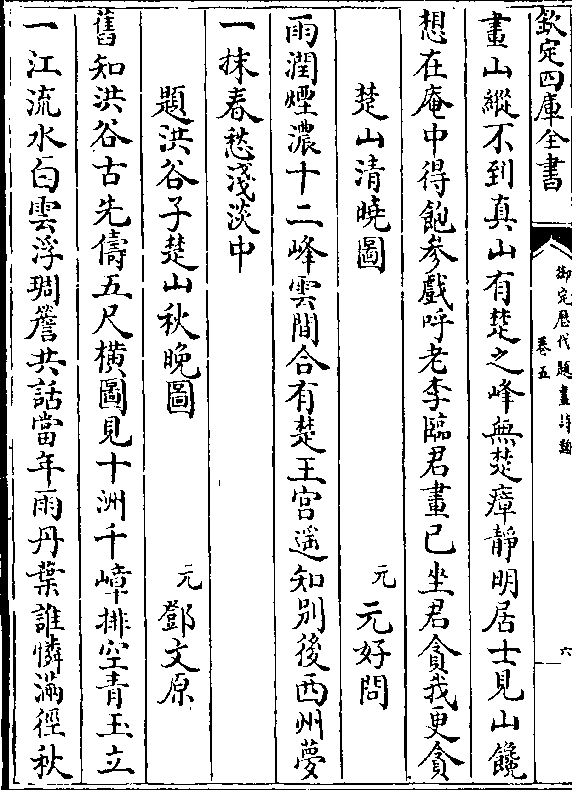 欽定四庫全書
御定歷代題畫詩類
卷五
六
畫山縱不到真山有楚之峰無楚瘴靜明居士見山饞
想在庵中得飽參戲呼老李臨君畫已坐君貪我更貪
楚山清曉圖
元 元好問
雨潤煙濃十二峰雲間合有楚王宮遥知別後西州夢
一抹春愁淺淡中
題洪谷子楚山秋晚圖
元 鄧文原
舊知洪谷古先儔五尺橫圖見十洲千嶂排空青玉立
一江流水白雲浮琱簷共話當年雨丹葉誰憐滿徑秋